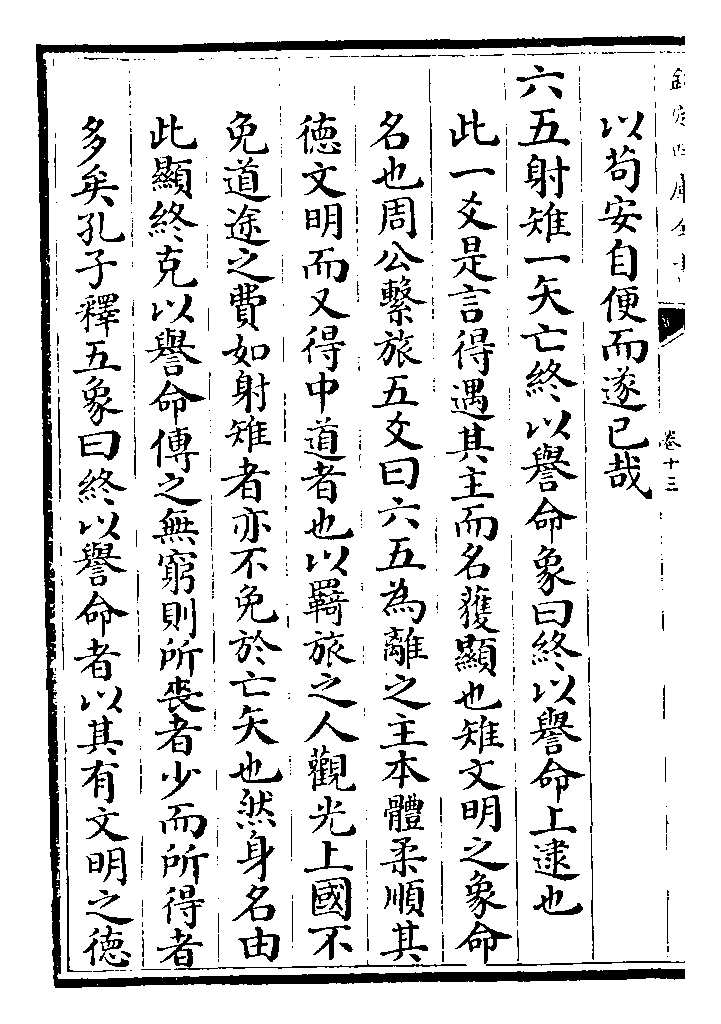 欽定四庫全書
卷十三
以苟安自便而遂已哉
六五射雉一矢亡終以譽命象曰終以譽命上逮也
此一爻是言得遇其主而名獲顯也雉文明之象命
名也周公繫旅五爻曰六五為離之主本體柔順其
德文明而又得中道者也以羇旅之人觀光上國不
免道途之費如射雉者亦不免於亡矢也然身名由
此顯終克以譽命傳之無窮則所喪者少而所得者
多矣孔子釋五象曰終以譽命者以其有文明之德